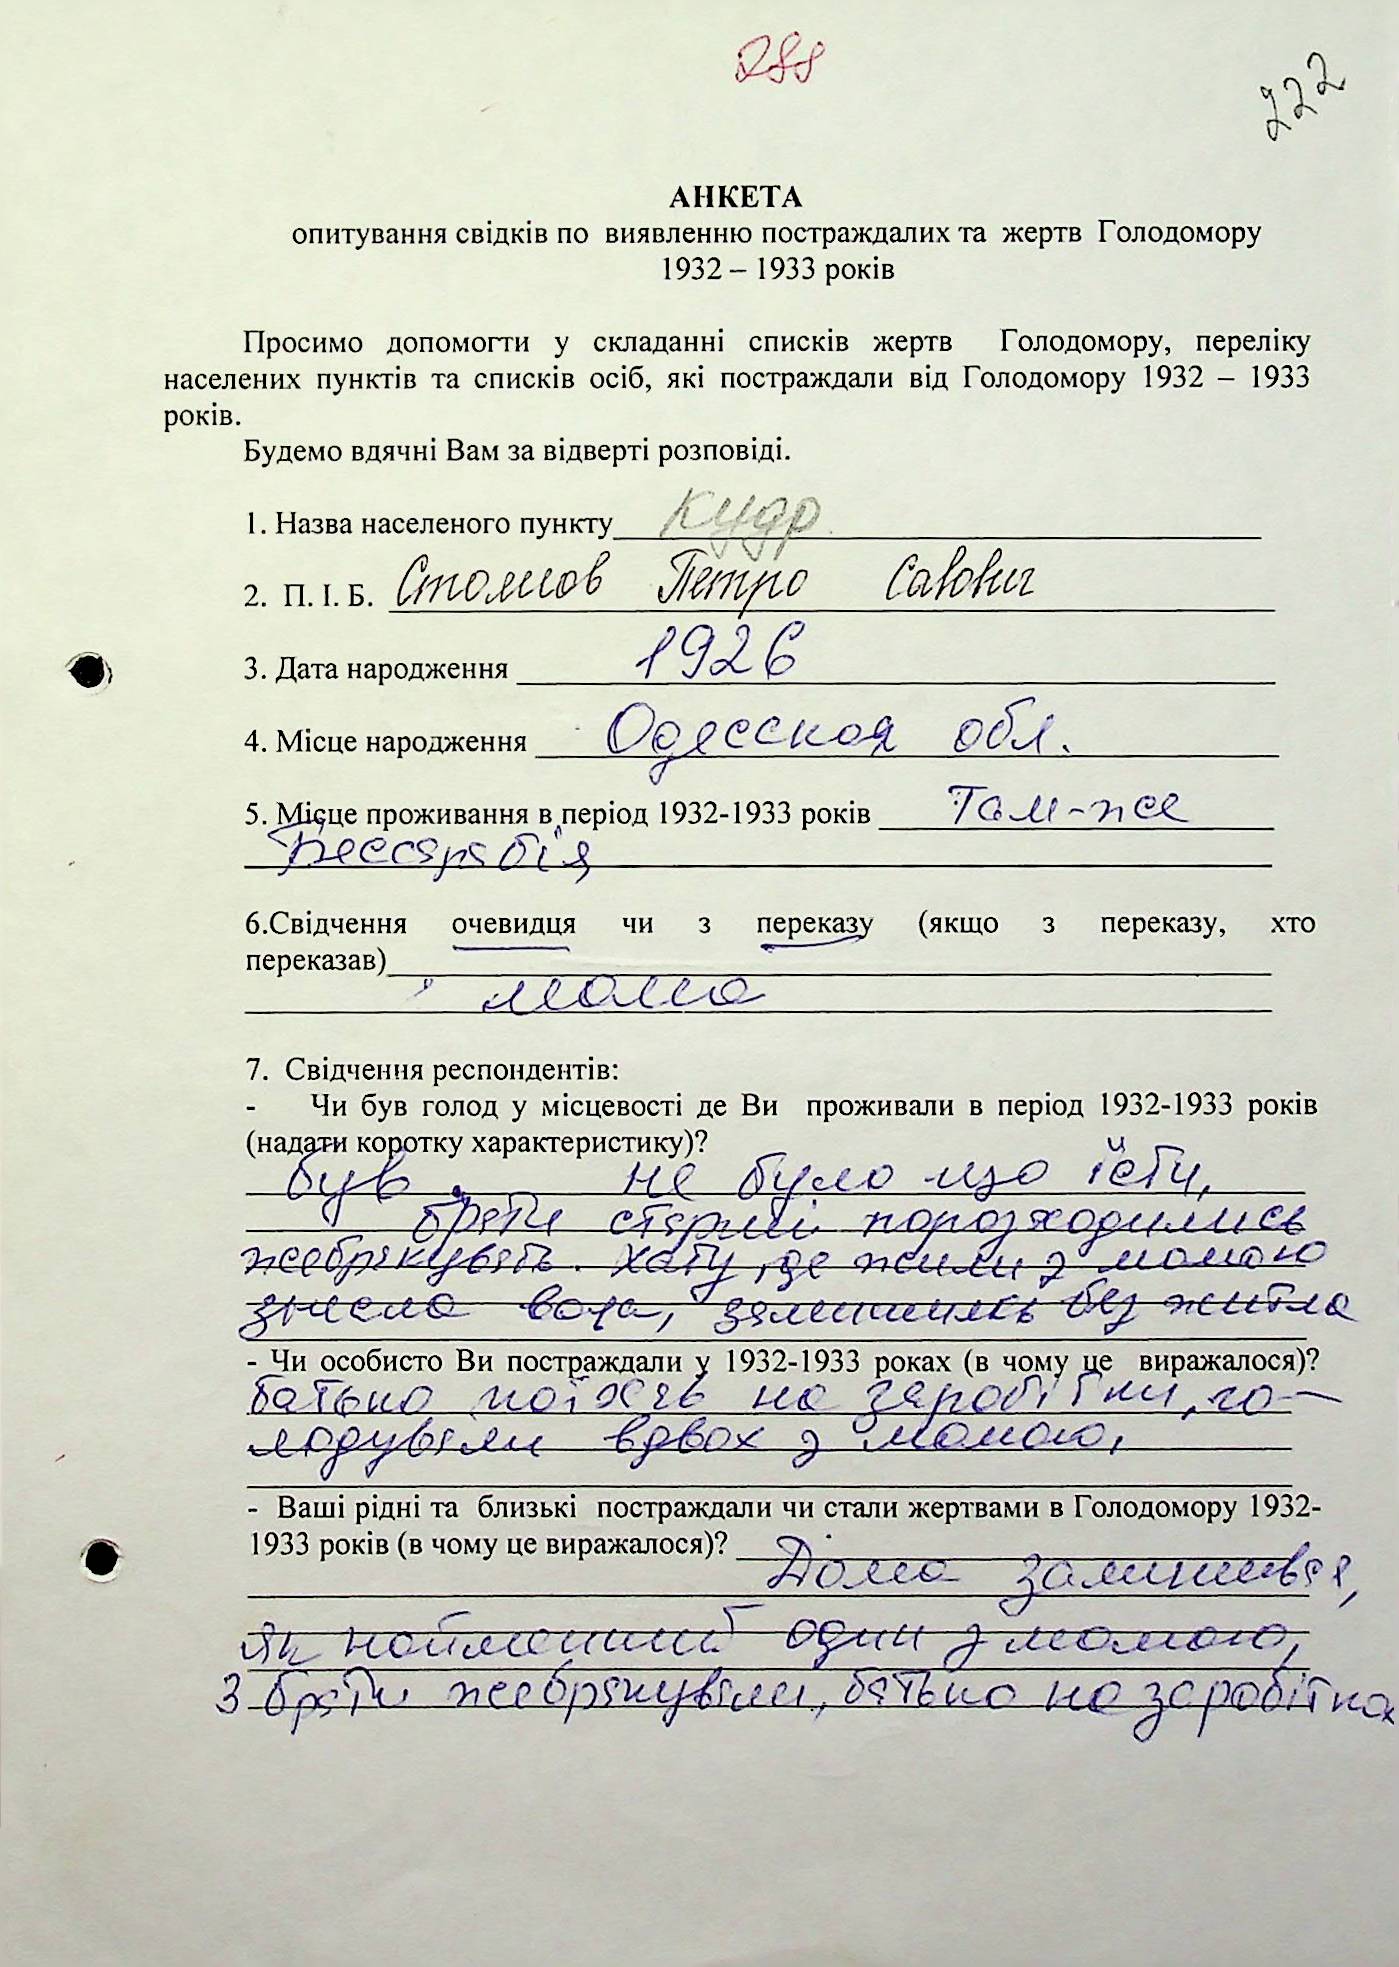 288
222
АНКЕТА
опитування свідків по виявленню постраждалих та жертв Голодомору
1932 – 1933 років
Просимо допомогти у складанні списків жертв Голодомору, переліку
населених пунктів та списків осіб, які постраждали від Голодомору 1932 – 1933
років.
Будемо вдячні Вам за відверті розповіді.
1. Назва населеного пункту Кудр
2. П. І. Б. Петро Савович
3. Дата народження 1926
4. Місце народження Одесская обл.
5. Місце проживання в період 1932-1933 років Там-же
Бессарабія
6.Свідчення очевидця чи з переказу (якщо з переказу, хто
переказав)
мама
7. Свідчення респондентів:
- Чи був голод у місцевості де Ви проживали в період 1932-1933 років
(надати коротку характеристику)?
був. не було що їсти,
брати старші порозходились
жебракувать. Хату, де жили з мамою
знесла вода, залишились без житла
- Чи особисто Ви постраждали у 1932-1933 роках (в чому це виражалося)?
батько поїхав на заробітки, го-
лодували вдвох з мамою,
- Ваші рідні та близькі постраждали чи стали жертвами в Голодомору 1932-
1933 років (в чому це виражалося)?
Дома залишився,
як найменший один з мамою,
3 брати жебракували, батько на заробітках